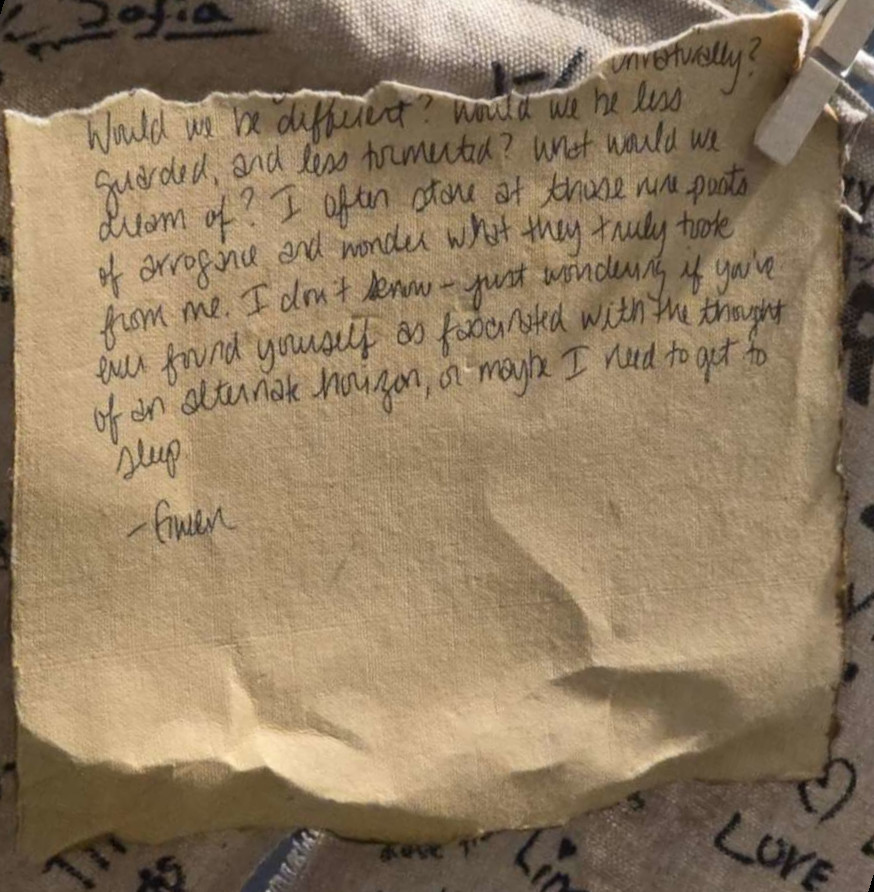 Sofia
unnaturally?
Would we be different? Would we be less
guarded, and less tormented? What would we
dream of? I often stare at those nine posts
of arrogance and wonder what they truly took
from me. I don't know - just wondering if you've
ever found yourself as fascinated with the thought
of an alternate horizon, or maybe I need to get to
sleep
-Gwen
LOVE